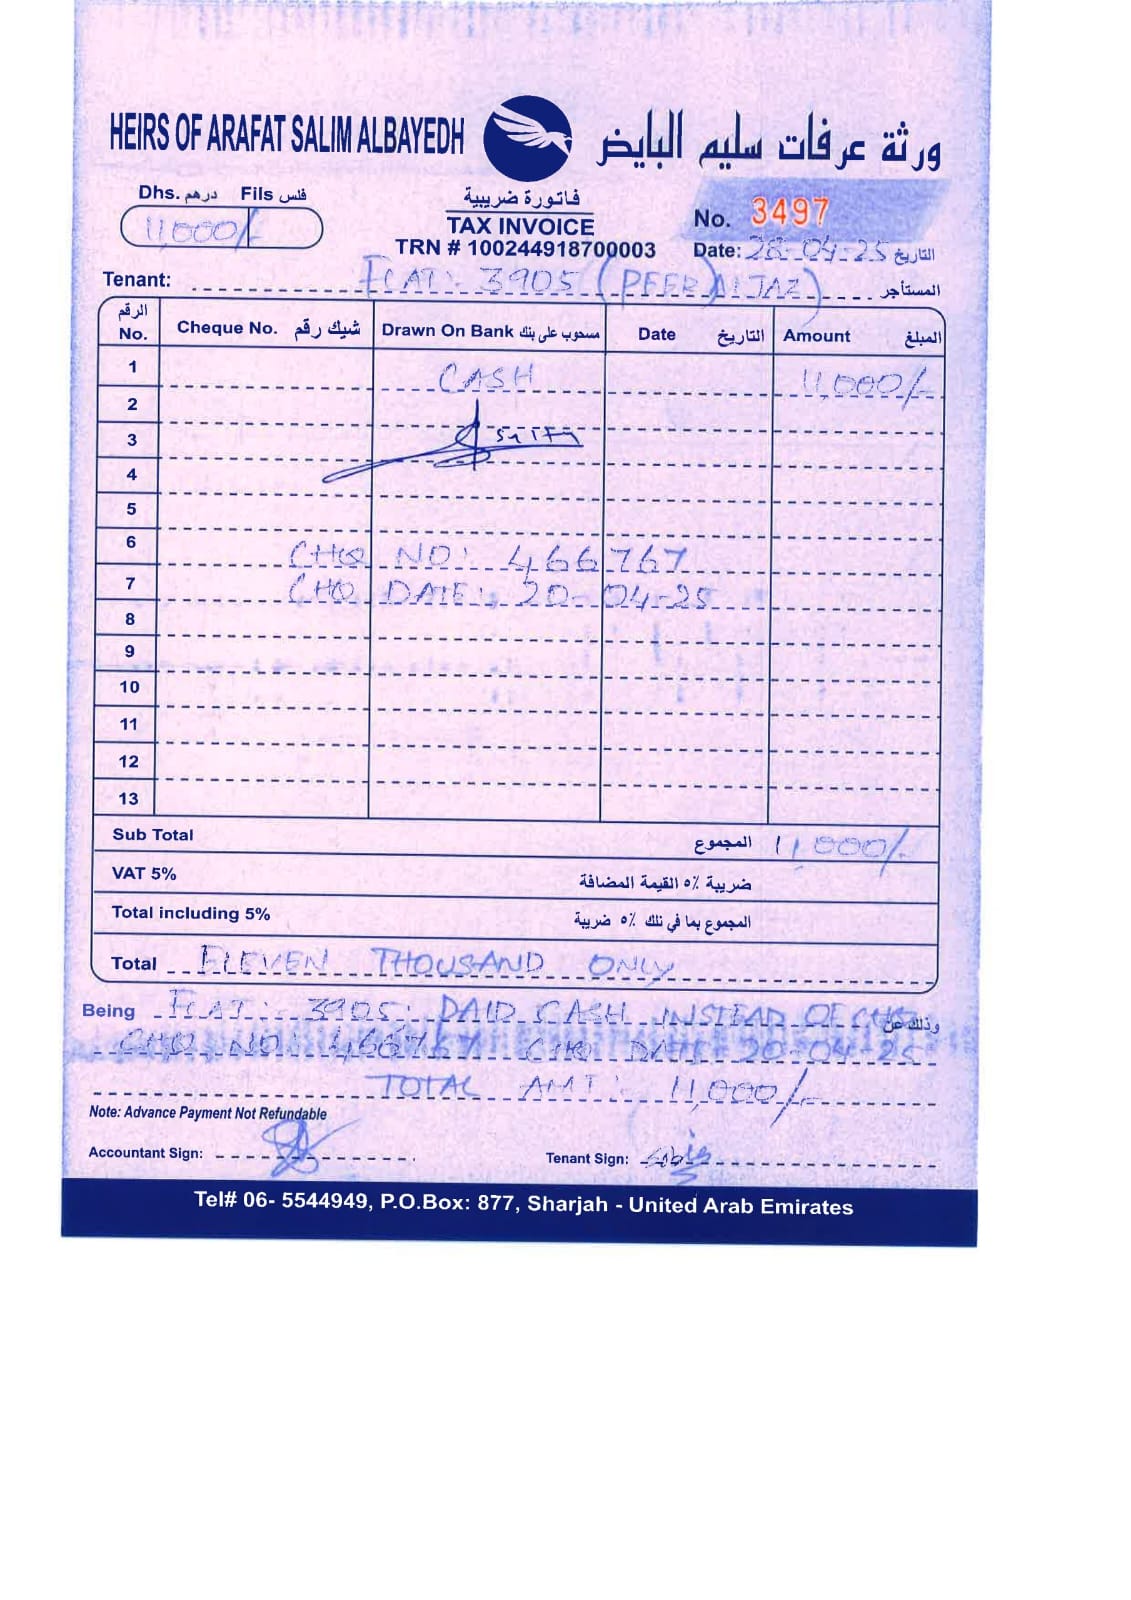 HEIRS OF ARAFAT SALIM ALBAYEDH
ورثة عرفات سليم البايض
Dhs. درهم Fils فلس
11,000/-
فاتورة ضريبية
TAX INVOICE
TRN # 100244918700003
No. 3497
Date: 28-04-25 التاريخ
Tenant: FLAT: 3905 (PEER AIJAZ) المستأجر
الرقم No. Cheque No. شيك رقم Drawn On Bank مسحوب على بنك Date التاريخ Amount المبلغ
1 CASH 11,000/-
2
3
4
5
6 CHQ NO: 466767
7 CHQ DATE: 20-04-25
8
9
10
11
12
13
Sub Total المجموع 11,000/-
VAT 5% ضريبة ٥% القيمة المضافة
Total including 5% المجموع بما في ذلك ٥% ضريبة
Total ELEVEN THOUSAND ONLY
Being FLAT: 3905: PAID CASH INSTEAD OF CHQ وذلك عن
CHQ NO: 466767 CHQ DATE: 20-04-25
TOTAL AMT: 11,000/-
Note: Advance Payment Not Refundable
Accountant Sign:
Tenant Sign:
Tel# 06- 5544949, P.O.Box: 877, Sharjah - United Arab Emirates